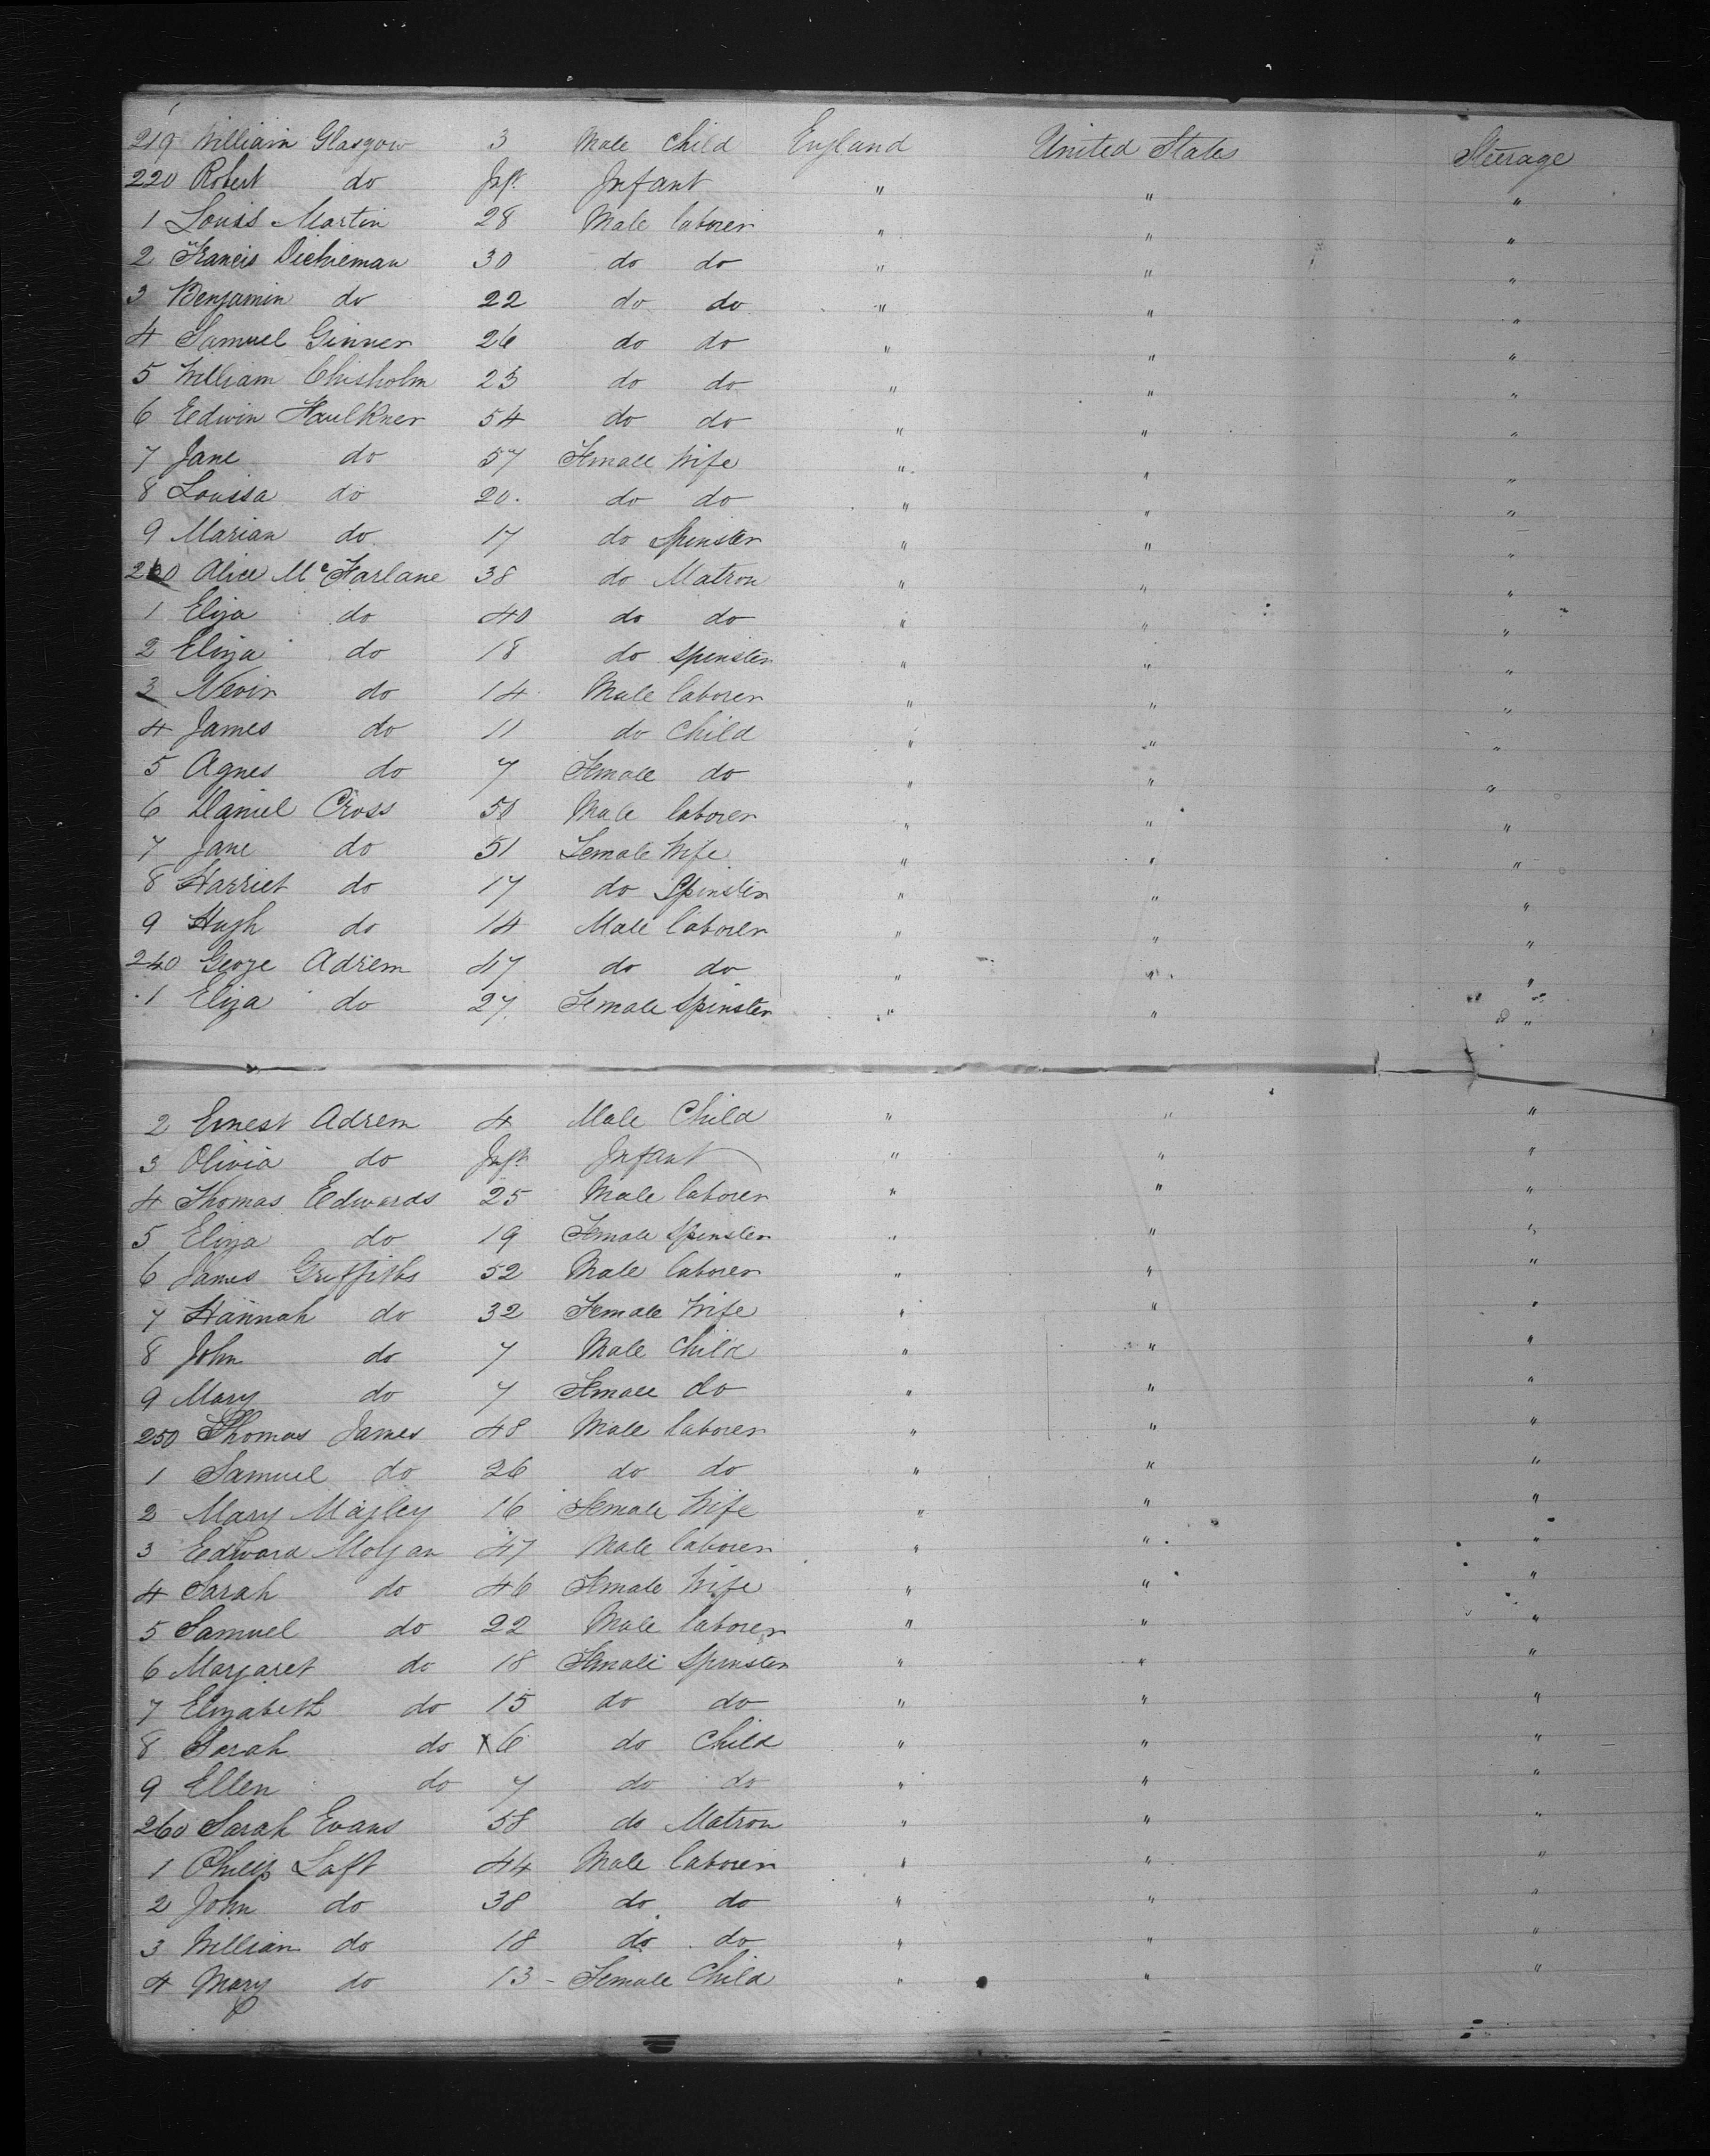 219 William Glasgow 3 Male Child England United States Steerage
220 Robert do Inft Infant " " "
1 Louis Martin 28 Male laborer " " "
2 Francis Dickieman 30 do do " " "
3 Benjamin do 22 do do " " "
4 Samuel Ginner 26 do do " " "
5 William Chisholm 23 do do " " "
6 Edwin Faulkner 54 do do " " "
7 Jane do 57 Female Wife " " "
8 Louisa do 20 do do " " "
9 Marian do 17 do Spinster " " "
230 Alice McFarlane 38 do Matron " " "
1 Eliza do 40 do do " " "
2 Eliza do 18 do Spinster " " "
3 Nevin do 14 Male laborer " " "
4 James do 11 do Child " " "
5 Agnes do 7 Female do " " "
6 Daniel Cross 50 Male laborer " " "
7 Jane do 51 Female Wife " " "
8 Harriet do 17 do Spinster " " "
9 Hugh do 14 Male laborer " " "
240 Geoge Adrem 47 do do " " "
1 Eliza do 27 Female Spinster " " "
2 Ernest Adrem 4 Male Child " " "
3 Olivia do Inft Infant " " "
4 Thomas Edwards 25 Male laborer " " "
5 Eliza do 19 Female Spinster " " "
6 James Griffiths 52 Male laborer " " "
7 Hannah do 32 Female Wife " " "
8 John do 7 Male Child " " "
9 Mary do 7 Female do " " "
250 Thomas James 48 Male laborer " " "
1 Samuel do 26 do do " " "
2 Mary 16 Female Wife " " "
3 Edward Molgan 47 Male laborer " " "
4 Sarah do 46 Female Wife " " "
5 Samuel do 22 Male laborer " " "
6 Margaret do 18 Female Spinster " " "
7 Elizabeth do 15 do do " " "
8 Sarah do 6 do Child " " "
9 Ellen do 7 do do " " "
260 Sarah Evans 58 do Matron " " "
1 Philip Laft 44 Male laborer " " "
2 John do 38 do do " " "
3 William do 18 do do " " "
4 Mary do 13 - Female Child " " "